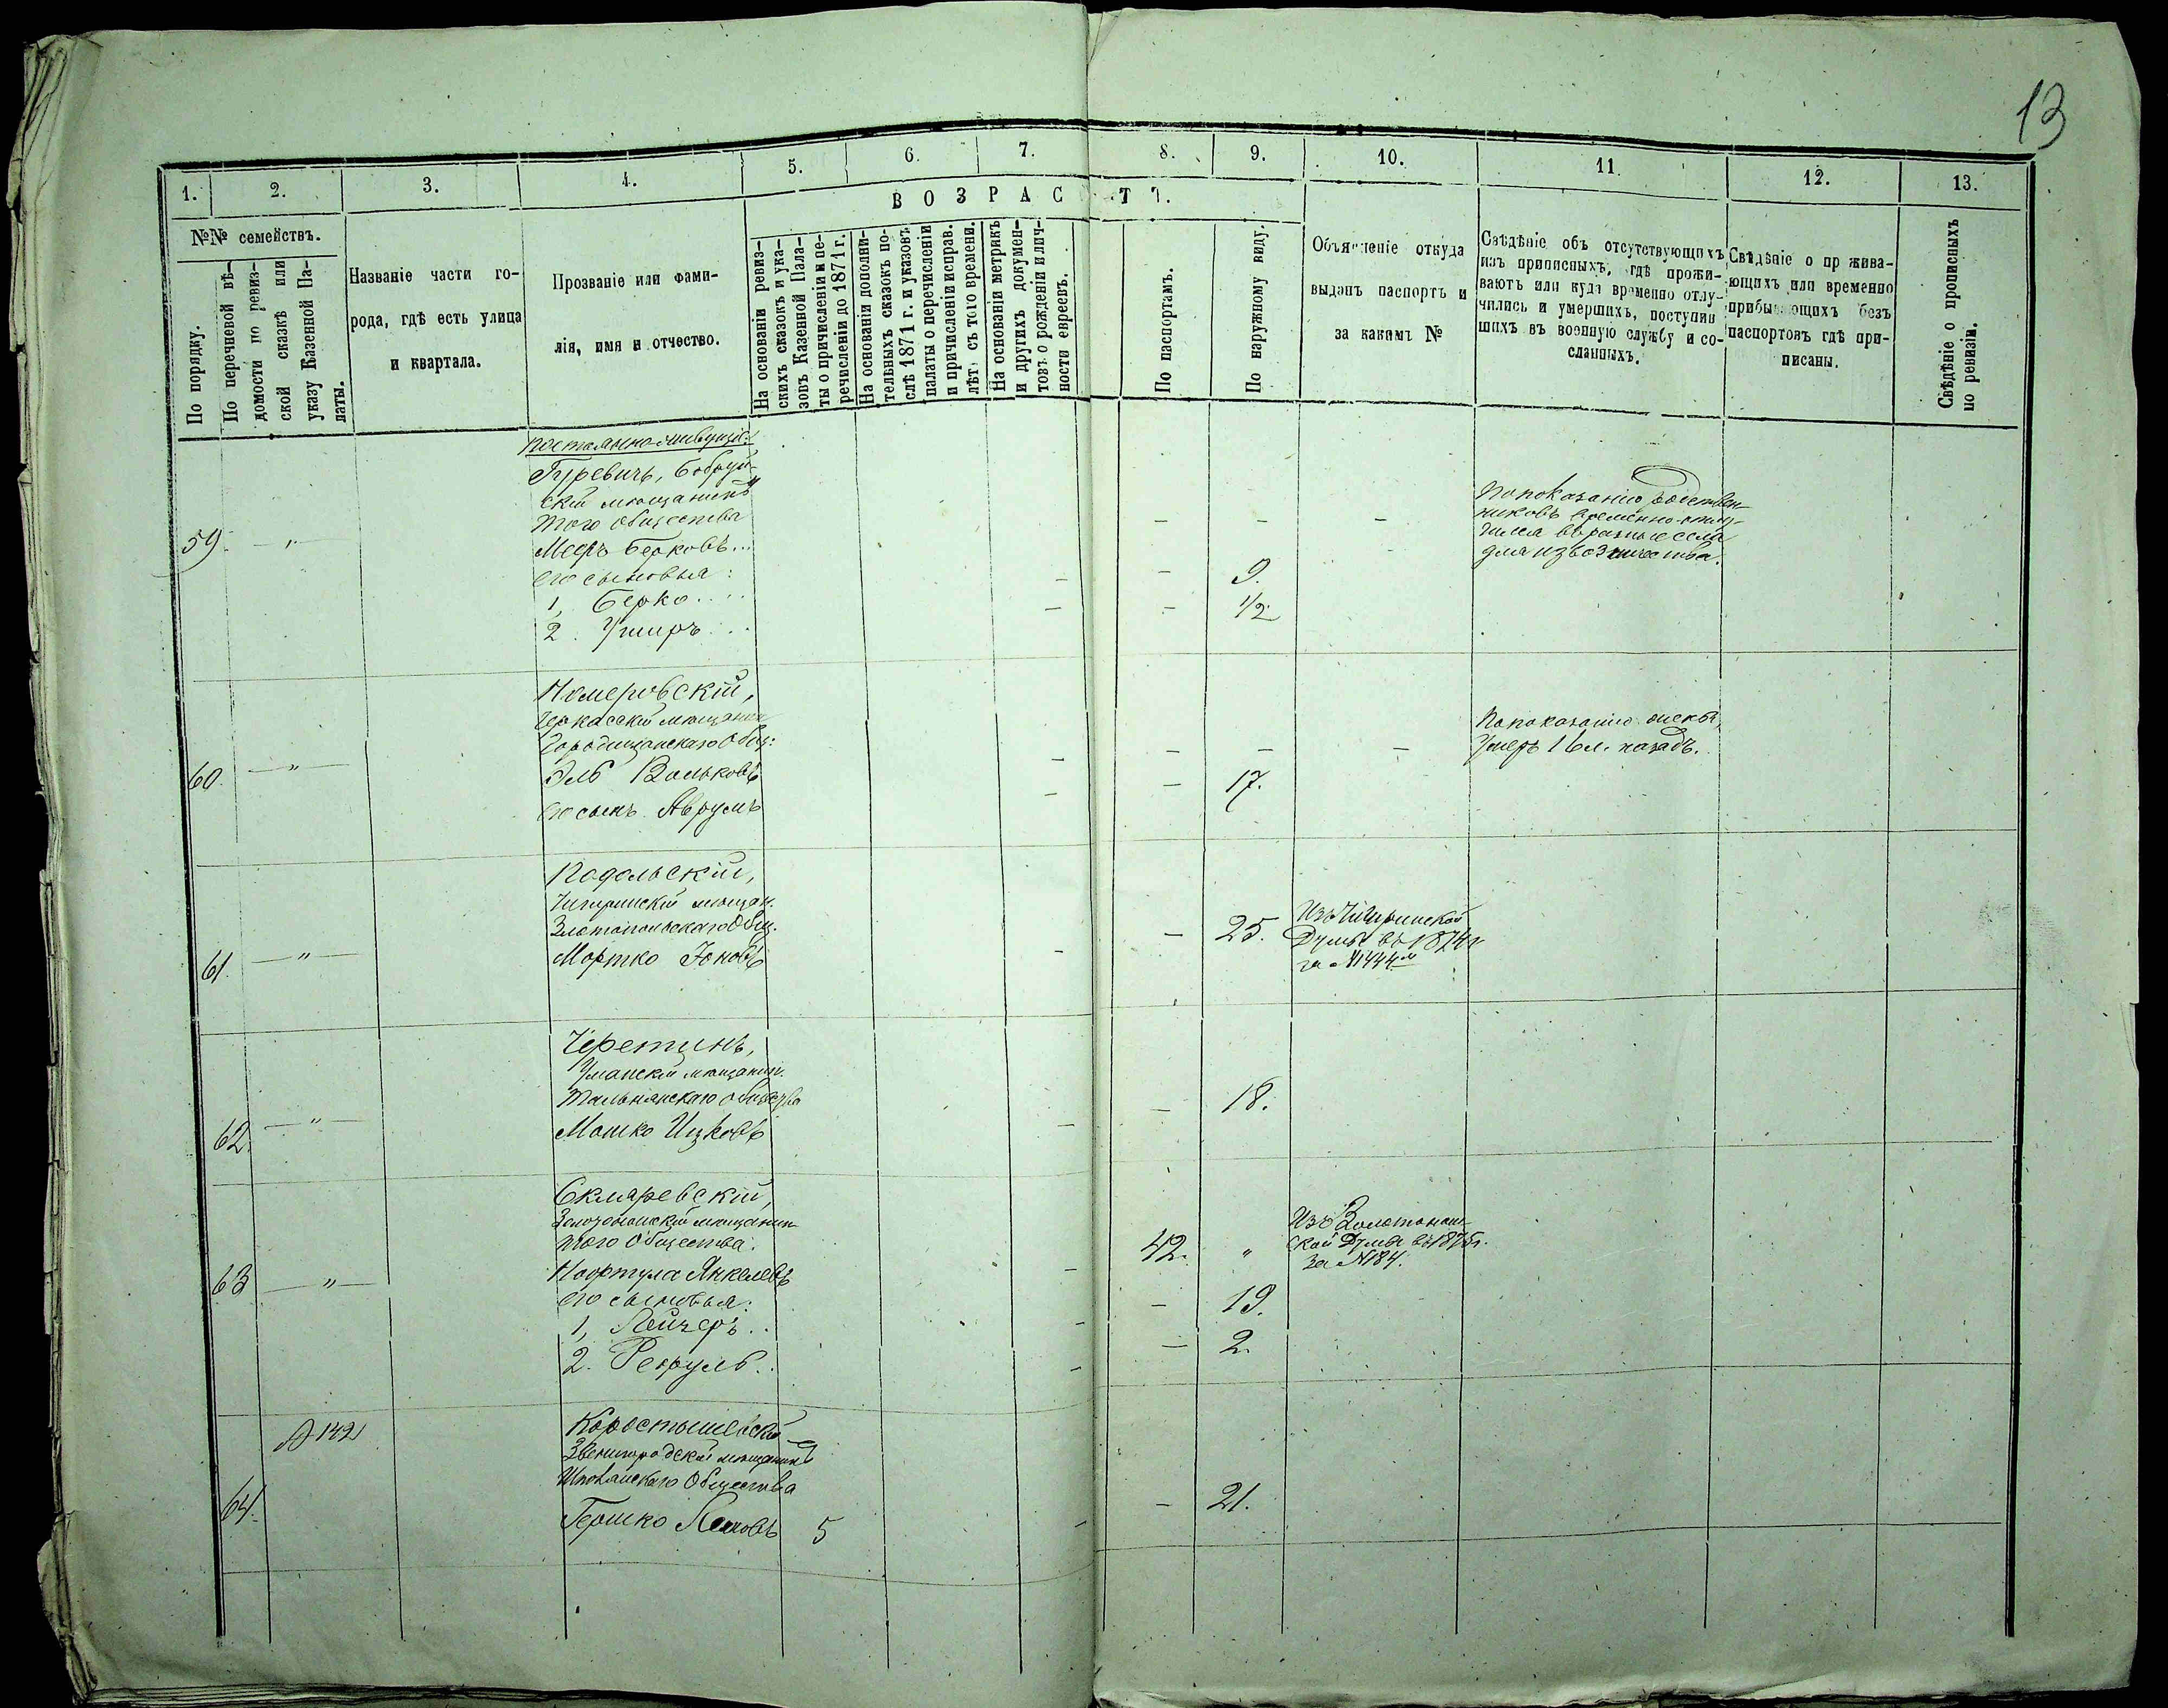 13
1. 2. 3. 4. 5. 6. 7. 8. 9. 10. 11. 12. 13.
№№ семействъ.
По порядку.
По перечневой вѣ-
домости по ревиз-
ской сказкѣ или
указу Казенной Па-
латы.
Названіе части го-
рода, гдѣ есть улица
и квартала.
Прозваніе или фами-
лія, имя и отчество.
ВОЗРАСТЪ.
На основаніи ревиз-
скихъ сказокъ и ука-
зовъ Казенной Пала-
ты о причисленіи и пе-
речисленіи до 1871 г.
На основаніи дополни-
тельныхъ сказокъ по-
слѣ 1871 г. и указовъ
палаты о перечисленіи
и причисленіи исправ.
лѣт. съ того времени.
На основаніи метрикъ
и другихъ докумен-
товъ о рожденіи и лич-
ности евреевъ.
По паспортамъ.
По наружному виду.
Объясненіе откуда
выданъ паспортъ и
за какимъ №
Свѣдѣніе объ отсутствующихъ
изъ приписныхъ, гдѣ прожи-
ваютъ или куда временно отлу-
чились и умершихъ, поступив
шихъ въ военную службу и со-
сланныхъ.
Свѣдѣніе о прожива-
ющихъ или временно
прибывающихъ безъ
паспортовъ гдѣ при-
писаны.
Свѣдѣніе о прописныхъ
по ревизіи.
Постоянно живущіе:
Гуревичъ, Бобруй-
скій мѣщанинъ
того общества
59. — " — Мееръ Берковъ... — — —
По показанію родствен-
никовъ временно отлу-
чился въ разные села
для извозничества.
его сыновья:
1, Берко.... — — 9.
2. Ушеръ... — — 1/2
Номеровскій,
Черкасскій мѣщанин
Городищанскаго Общ:
60. — " — Эль Вольковъ — — — —
По показанію опекы,
Умеръ 16 л. назадъ.
его сынъ Аврумъ — — 17.
Подольскій,
Чигиринскій мѣщан.
Златопольскаго Общ.
61. — " — Мортко Іоновъ — — 25.
Изъ Чигиринской
Думы въ 1874 г
за №1444м
Черетинъ,
Уманскій мѣщанин.
Тальнянскаго общества
62. — " — Мошко Ицковъ — — 18.
Скляревскій,
Золотоношскій мѣщанин
того Общества.
63 — " — Нафтула Янкелевъ — 42. "
Изъ Золотонош-
ской Думы въ 1875 г.
за №184.
его сыновья:
1, Лейзеръ.. — — 19.
2. Рефуль.. — — 2.
Д 142
Коростышевскій
Звенигородскій мѣщанинъ
Шполянскаго Общества
64. Гершко 5 — — 21.